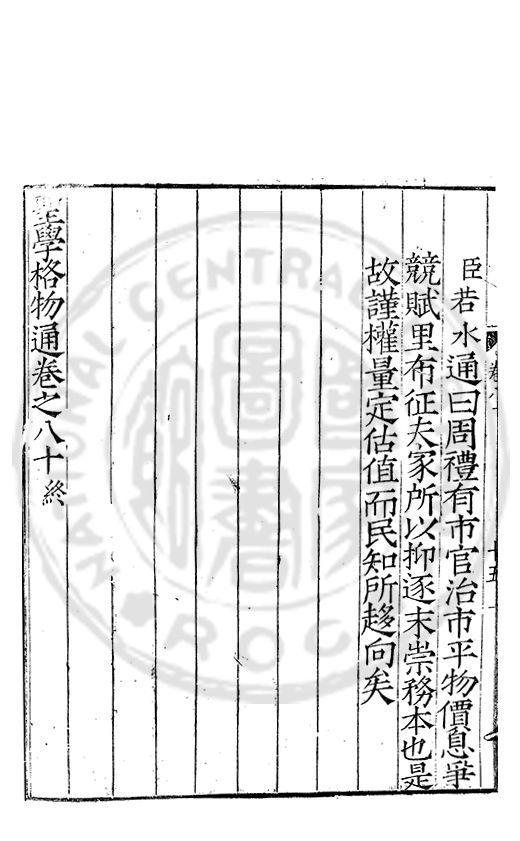 臣若水通曰周禮有市官治市平物價息爭
競賦里布征夫家所以抑逐末崇務本也是
故謹權量定估值而民知所趍向矣
聖學格物通卷之八十終
NATIONAL CENTRAL
R.O.C.